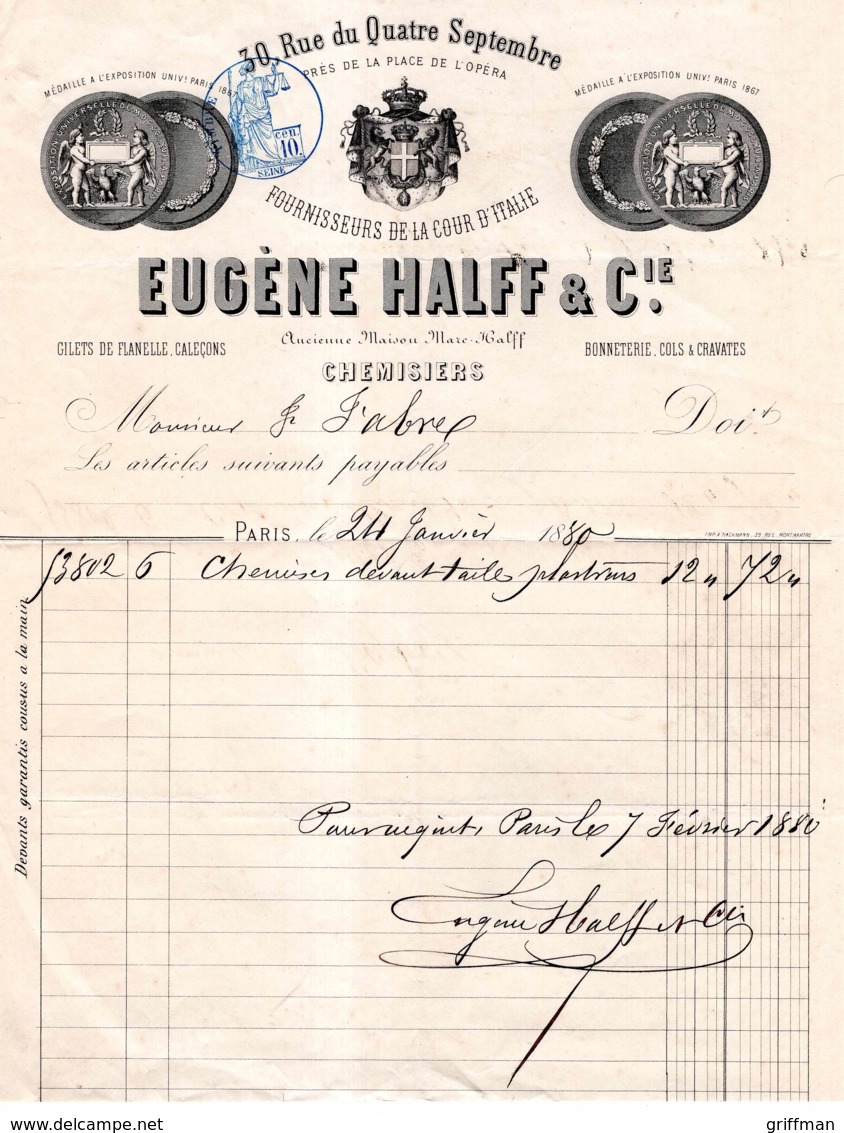 30, Rue du Quatre Septembre
PRÈS DE LA PLACE DE L'OPÉRA
MÉDAILLE A L'EXPOSITION UNIV. PARIS 1867
MÉDAILLE A L'EXPOSITION UNIV. PARIS 1867
EXPOSITION UNIVERSELLE DE
EXPOSITION UNIVERSELLE DE
10 cen.
SEINE
FOURNISSEURS DE LA COUR D'ITALIE
EUGÈNE HALFF & CIE.
Ancienne Maison Marc-Halff
GILETS DE FLANELLE, CALEÇONS
BONNETERIE, COLS & CRAVATES
CHEMISIERS
Monsieur Fabre Doit
Les articles suivants payables
PARIS, le 24 Janvier 1880
53802 6 Chemises devant toile plastrons 12 " 72 "
Devants garantis cousus a la main
Pour acquit, Paris le 7 Février 1880
Eugène Halff et Cie
griffman